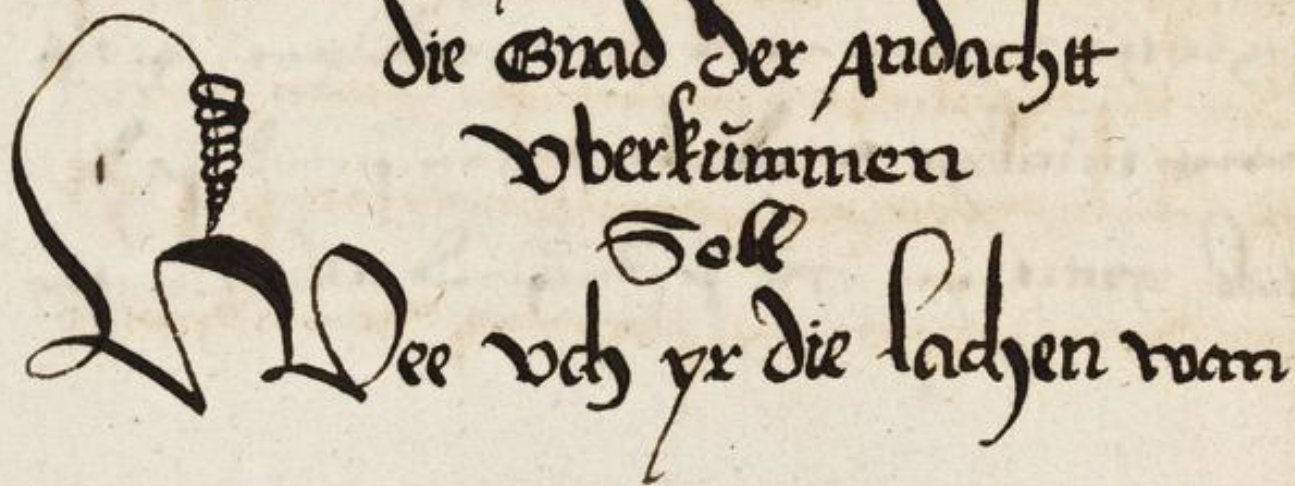 die Gnad der Andachtt
vberkŭmmen
Soll
Wee vch yr die lachen wan